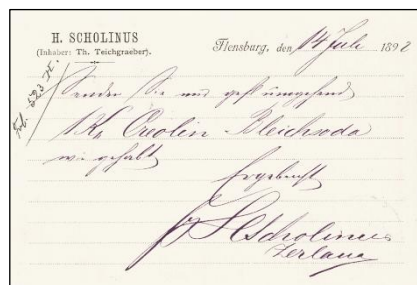 H. SCHOLINUS
(Inhaber: Th. Teichgraeber).
Flensburg, den 14 Juli 1892
Senden Sie uns gefl umgehend
1 Kg Creolin Bleichsoda
wie gehabt
Ergebenst
H Scholinus